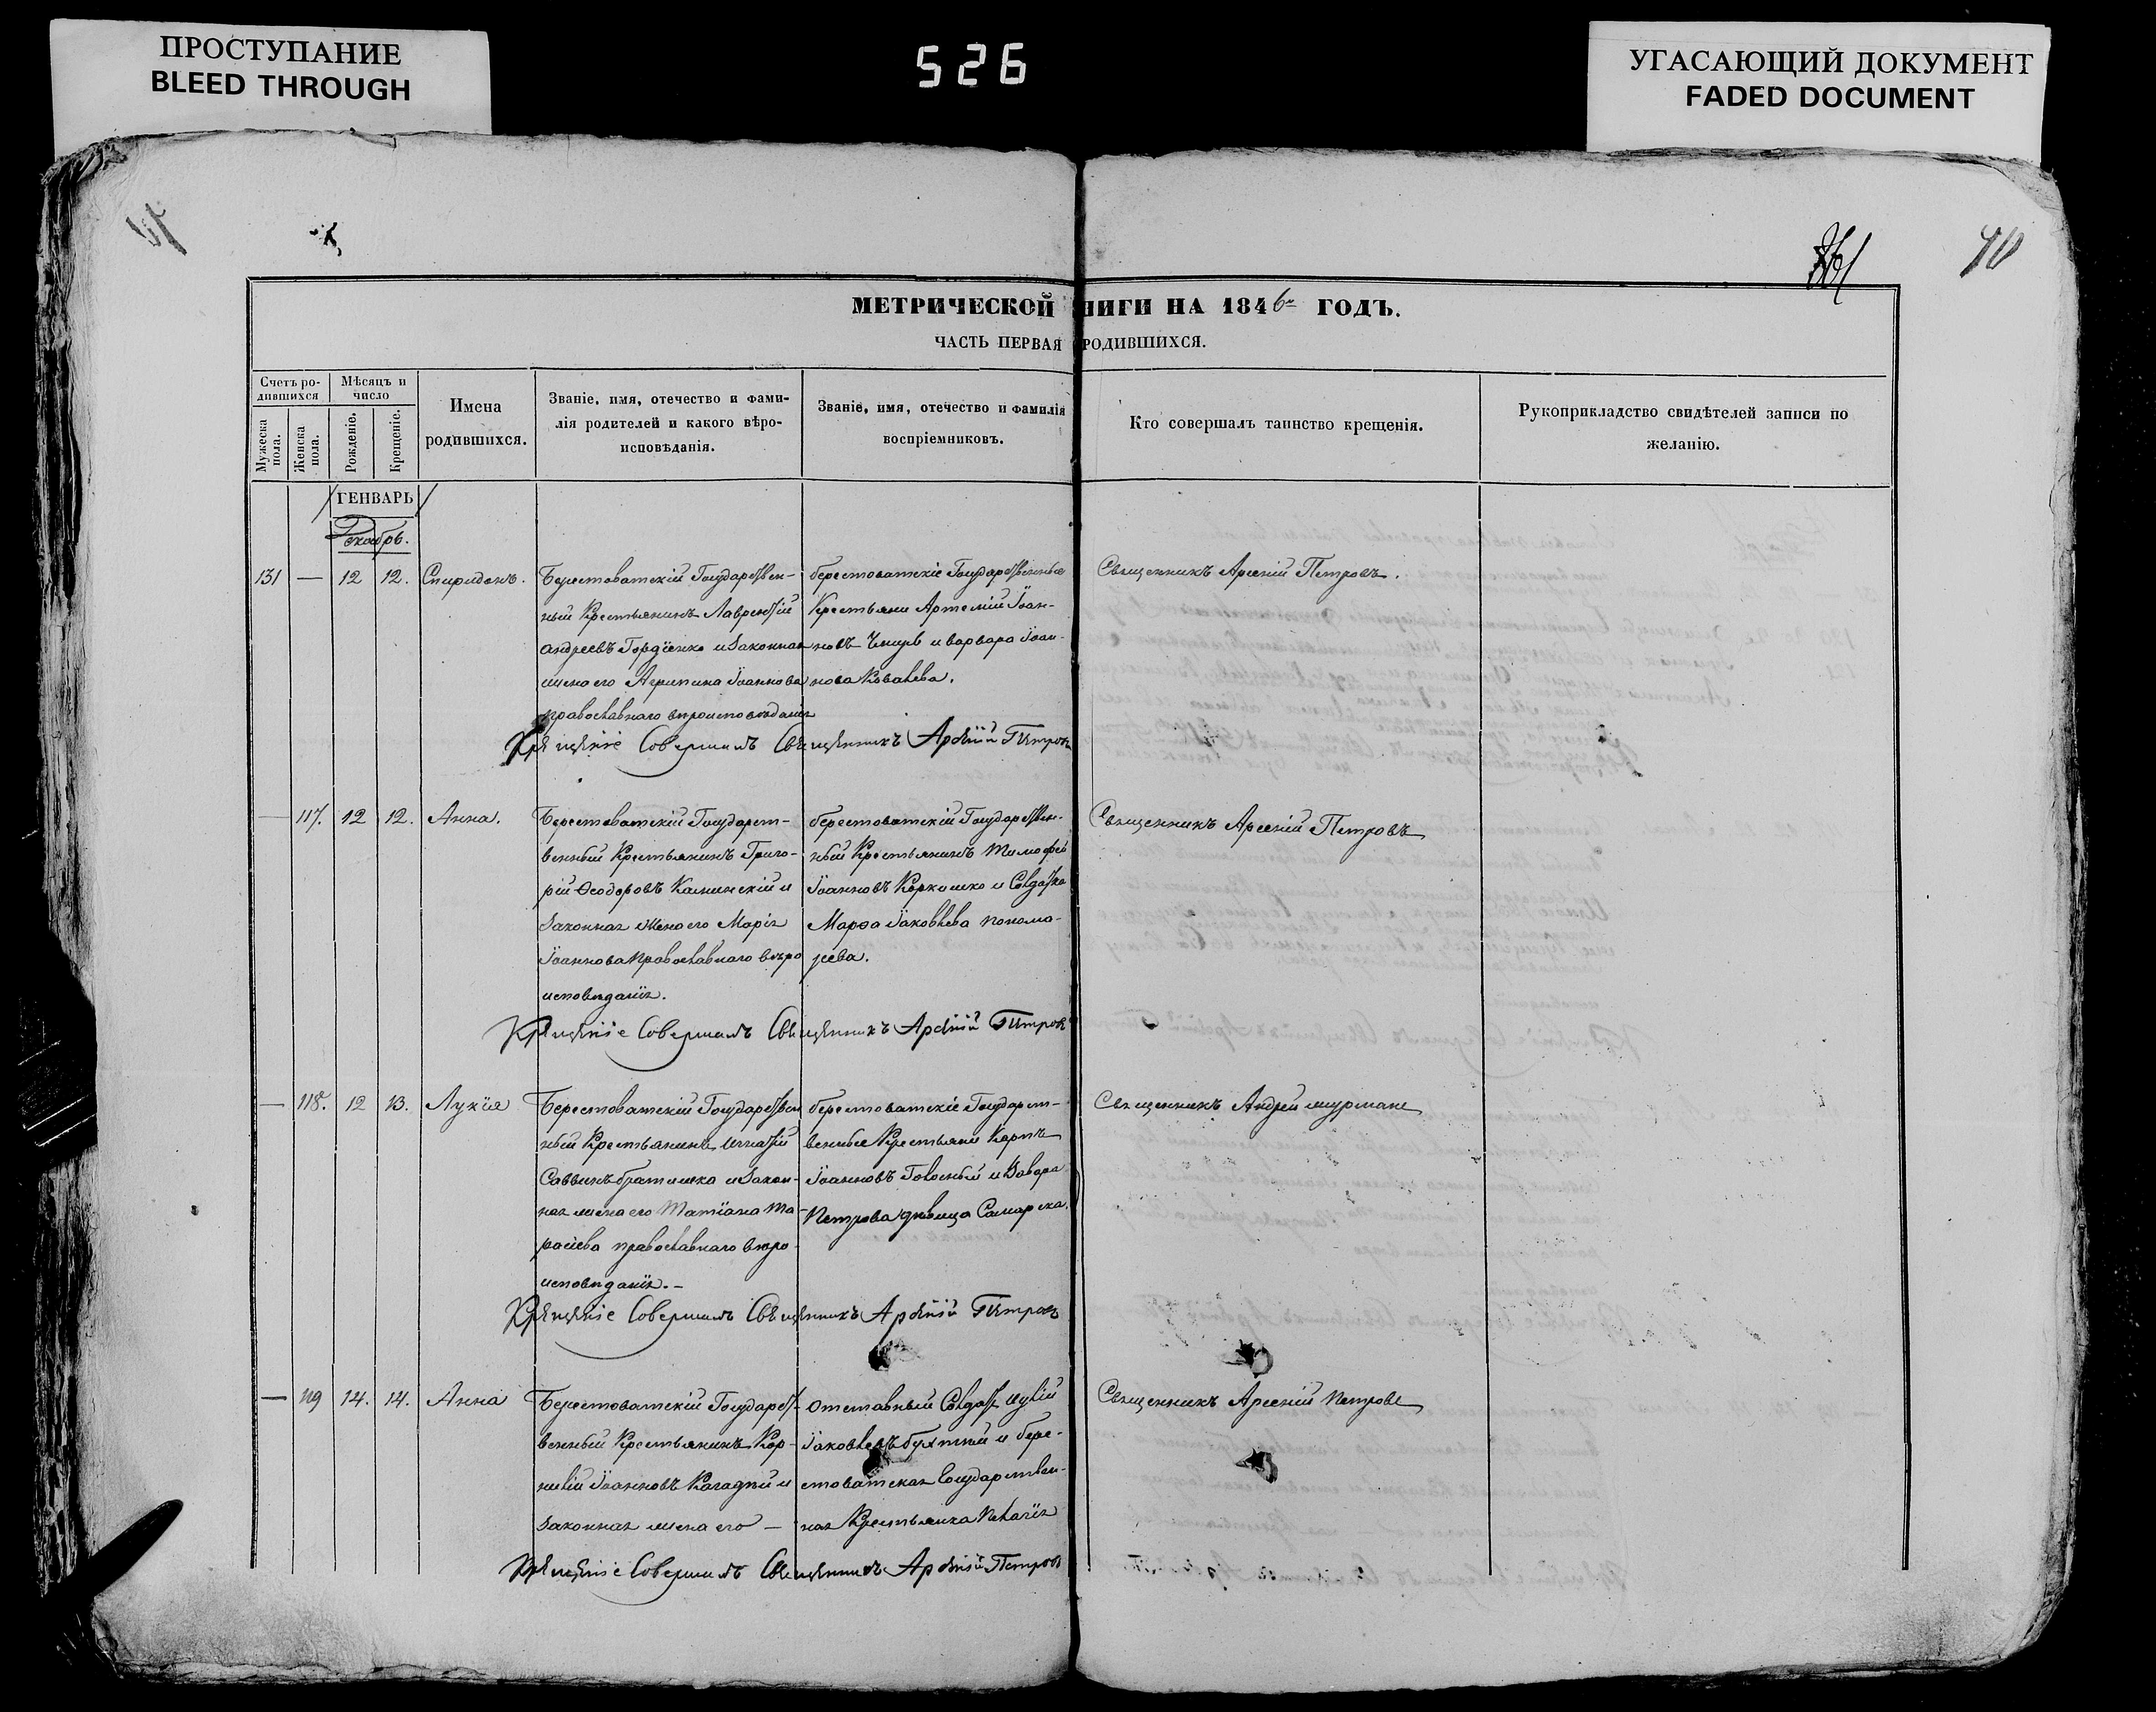 ПРОСТУПАНИЕ
BLEED THROUGH
526
УГАСАЮЩИЙ ДОКУМЕНТ
FADED DOCUMENT
40
МЕТРИЧЕСКОЙ НИГИ НА 1846 ГОДЪ.
ЧАСТЬ ПЕРВАЯ РОДИВШИХСЯ.
Счетъ ро-
дившихся
Мужеска пола.
Женска пола.
Мѣсяцъ и
число
Рожденіе.
Крещеніе.
Имена
родившихся.
Званіе, имя, отечество и фами-
лія родителей и какого вѣро-
исповѣданія.
Званіе, имя, отечество и фамилія
воспріемниковъ.
Кто совершалъ таинство крещенія.
Рукоприкладство свидѣтелей записи по
желанію.
ГЕНВАРЬ
Декабрь.
131 — 12 12. Спиридонъ.
Берестоватскій Государствен-
ный Крестьянинъ Лаврентій
Андреевъ Гордіенко и законная
жена его Агрипина Іоаннова
православнаго вѣроисповѣданія
берестоватскіе Государственные
Крестьяне Артемій Іоан-
новъ и варвара Іоан-
нова Ковалева.
Священникъ Арсеній Петровъ.
Крещеніе Совершилъ Священникъ Арсеній Петровъ
— 117. 12 12. Анна.
Берестоватскій Государст-
венный Крестьянинъ Григо-
рій Ѳеодоровъ Калинскій и
законная жена его Марія
Іоаннова православнаго вѣро
исповѣданія.
берестоватскій Государствен-
ный Крестьянинъ Тимофей
Іоанновъ и Солдатка
Марѳа Іаковлева понома-
рева.
Священникъ Арсеній Петровъ
Крещеніе Совершилъ Священникъ Арсеній Петровъ
— 118. 12 13. Лукія
Берестоватскій Государствен
ный Крестьянинъ Игнатій
Саввинъ братишка и закон-
ная жена его Татіана Та-
расіева православнаго вѣро-
исповѣданія. —
берестоватскіе Государст-
венные Крестьяне Карпъ
Іоанновъ и
Петрова дѣвица Самарска.
Священникъ Андрей
Крещеніе Совершилъ Священникъ Арсеній Петровъ
— 119 14. 14. Анна
Берестоватскій Государст-
венный Крестьянинъ Кор-
нилій Іоанновъ и
законная жена его —
Отставный Солдатъ
Іаковлевъ и бере-
стоватская Государствен-
ная Крестьянка Пелагія
Священникъ Арсеній Петровъ
Крещеніе Совершилъ Священникъ Арсеній Петровъ